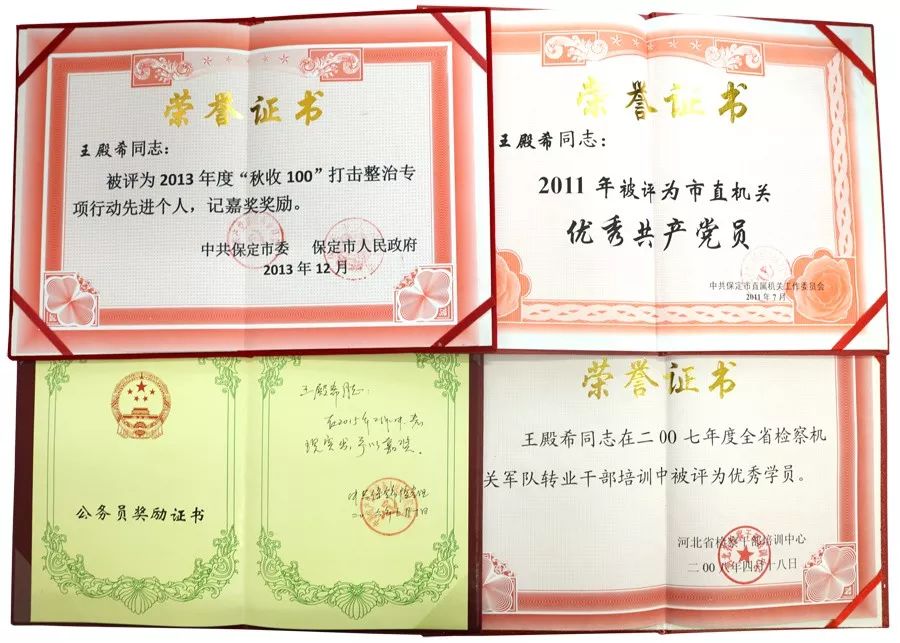 荣誉证书
王殿希同志：
被评为2013年度“秋收100”打击整治专
项行动先进个人，记嘉奖奖励。
中共保定市委 保定市人民政府
2013年12月
荣誉证书
王殿希同志：
2011年被评为市直机关
优秀共产党员
中共保定市直属机关工作委员会
2011年7月
公务员奖励证书
王殿希同志：
在2015年工作中表
现突出，予以嘉奖。
荣誉证书
王殿希同志在二00七年度全省检察机
关军队转业干部培训中被评为优秀学员。
河北省检察干部培训中心
二00八年四月十八日